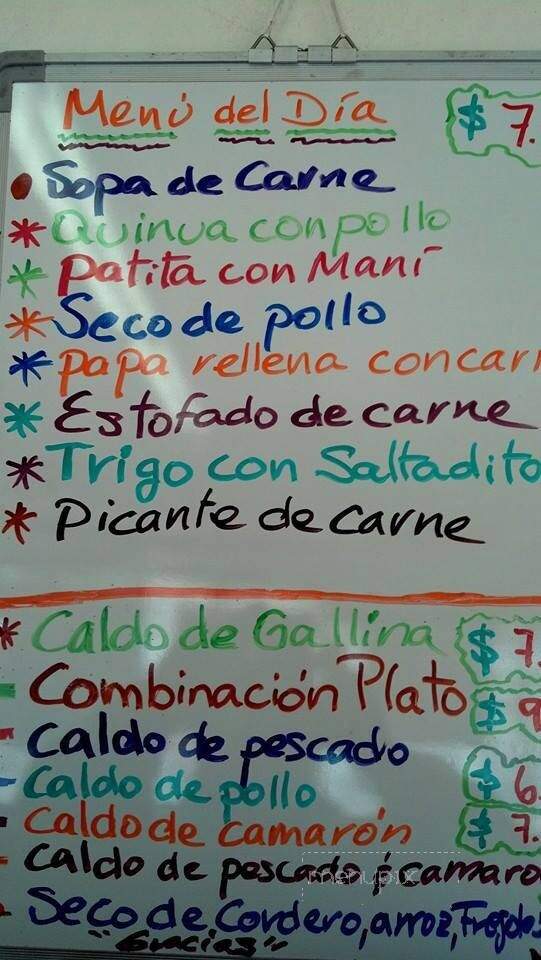 Menú del Día $ 7.
• Sopa de Carne
* Quinua con pollo
* Patita con Maní
* Seco de pollo
* papa rellena con carn
* Estofado de carne
* Trigo con Saltadito
* Picante de Carne
* Caldo de Gallina $ 7.
- Combinación Plato $ 9
- Caldo de pescado
- Caldo de pollo $ 6.
- Caldo de camarón $ 7.
- Caldo de pescado y camaro
- Seco de Cordero, arroz, Frejoles
"Gracias"
menupix